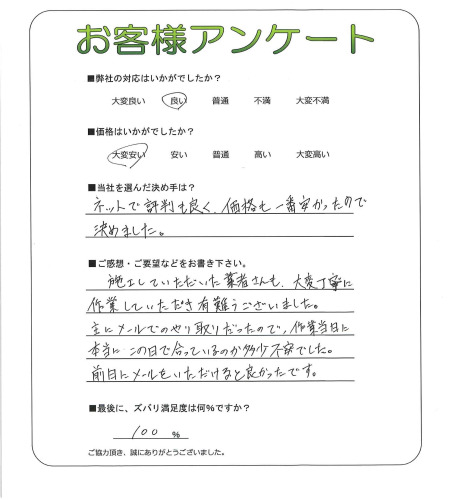 お客様アンケート
■弊社の対応はいかがでしたか？
大変良い 良い 普通 不満 大変不満
■価格はいかがでしたか？
大変安い 安い 普通 高い 大変高い
■当社を選んだ決め手は？
ネットで評判も良く、価格も一番安かったので
決めました。
■ご感想・ご要望などをお書き下さい。
施工していただいた業者さんも、大変丁寧に
作業していただき有難うございました。
主にメールでのやり取りだったので、作業当日に
本当にこの日で合っているのか多少不安でした。
前日にメールをいただけると良かったです。
■最後に、ズバリ満足度は何％ですか？
100 %
ご協力頂き、誠にありがとうございました。